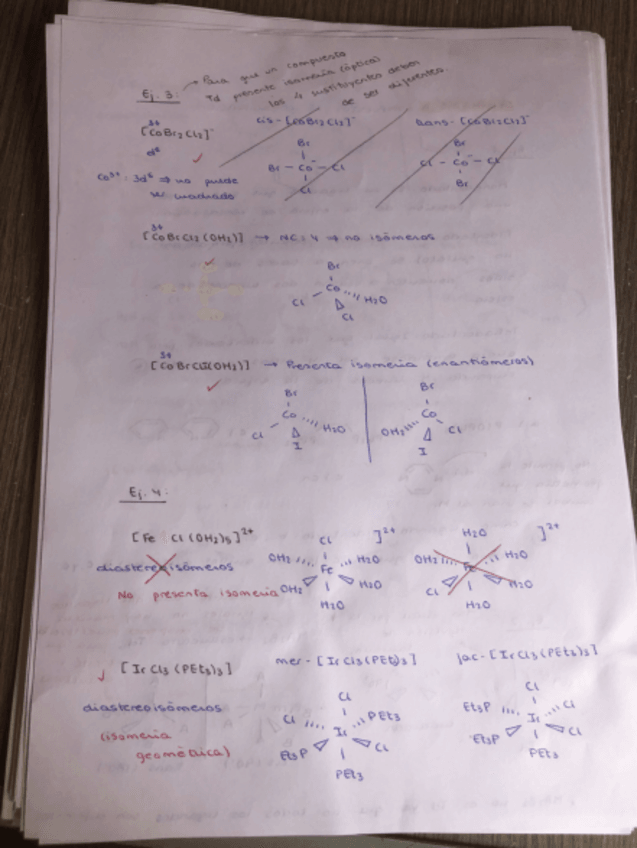 Ej. 3: → Para que un compuesto
Td presente isomería (óptica)
los 4 sustituyentes deben
de ser diferentes
3+
[CoBr2Cl2]⁻
d⁶
✓
Co³⁺: 3d⁶ ⇒ no puede
ser cuadrado
cis-[CoBr2Cl2]⁻
Br
Br — Co⁻ — Cl
Cl
trans-[CoBr2Cl2]⁻
Br
Cl — Co⁻ — Cl
Br
3+
[CoBrCl2(OH2)] → NC: 4 ⇒ no isómeros
✓
Br
Co
Cl H2O
Cl
3+
[CoBrClI(OH2)] → Presenta isomería (enantiómeros)
✓
Br
Co
Cl H2O
I
Br
Co
OH2 Cl
I
Ej. 4:
[Fe Cl (OH2)5]²⁺
diastereoisómeros
No presenta isomería
Cl ]²⁺
OH2 H2O
Fe
OH2 H2O
H2O
H2O ]²⁺
OH2 H2O
Fe
Cl H2O
H2O
✓ [IrCl3(PEt3)3]
diastereoisómeros
(isomería
geométrica)
mer-[IrCl3(PEt3)3]
Cl
Cl PEt3
Ir
Et3P Cl
PEt3
fac-[IrCl3(PEt3)3]
Cl
Et3P Cl
Ir
Et3P Cl
PEt3